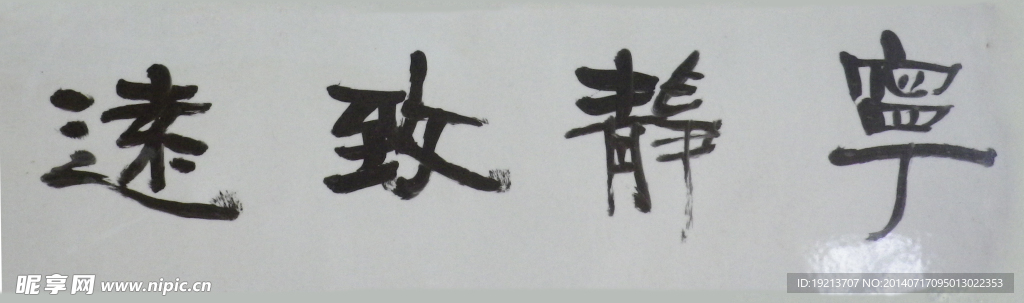 寧靜致遠
昵享网 www.nipic.cn
ID:19213707 NO:20140717095013022353